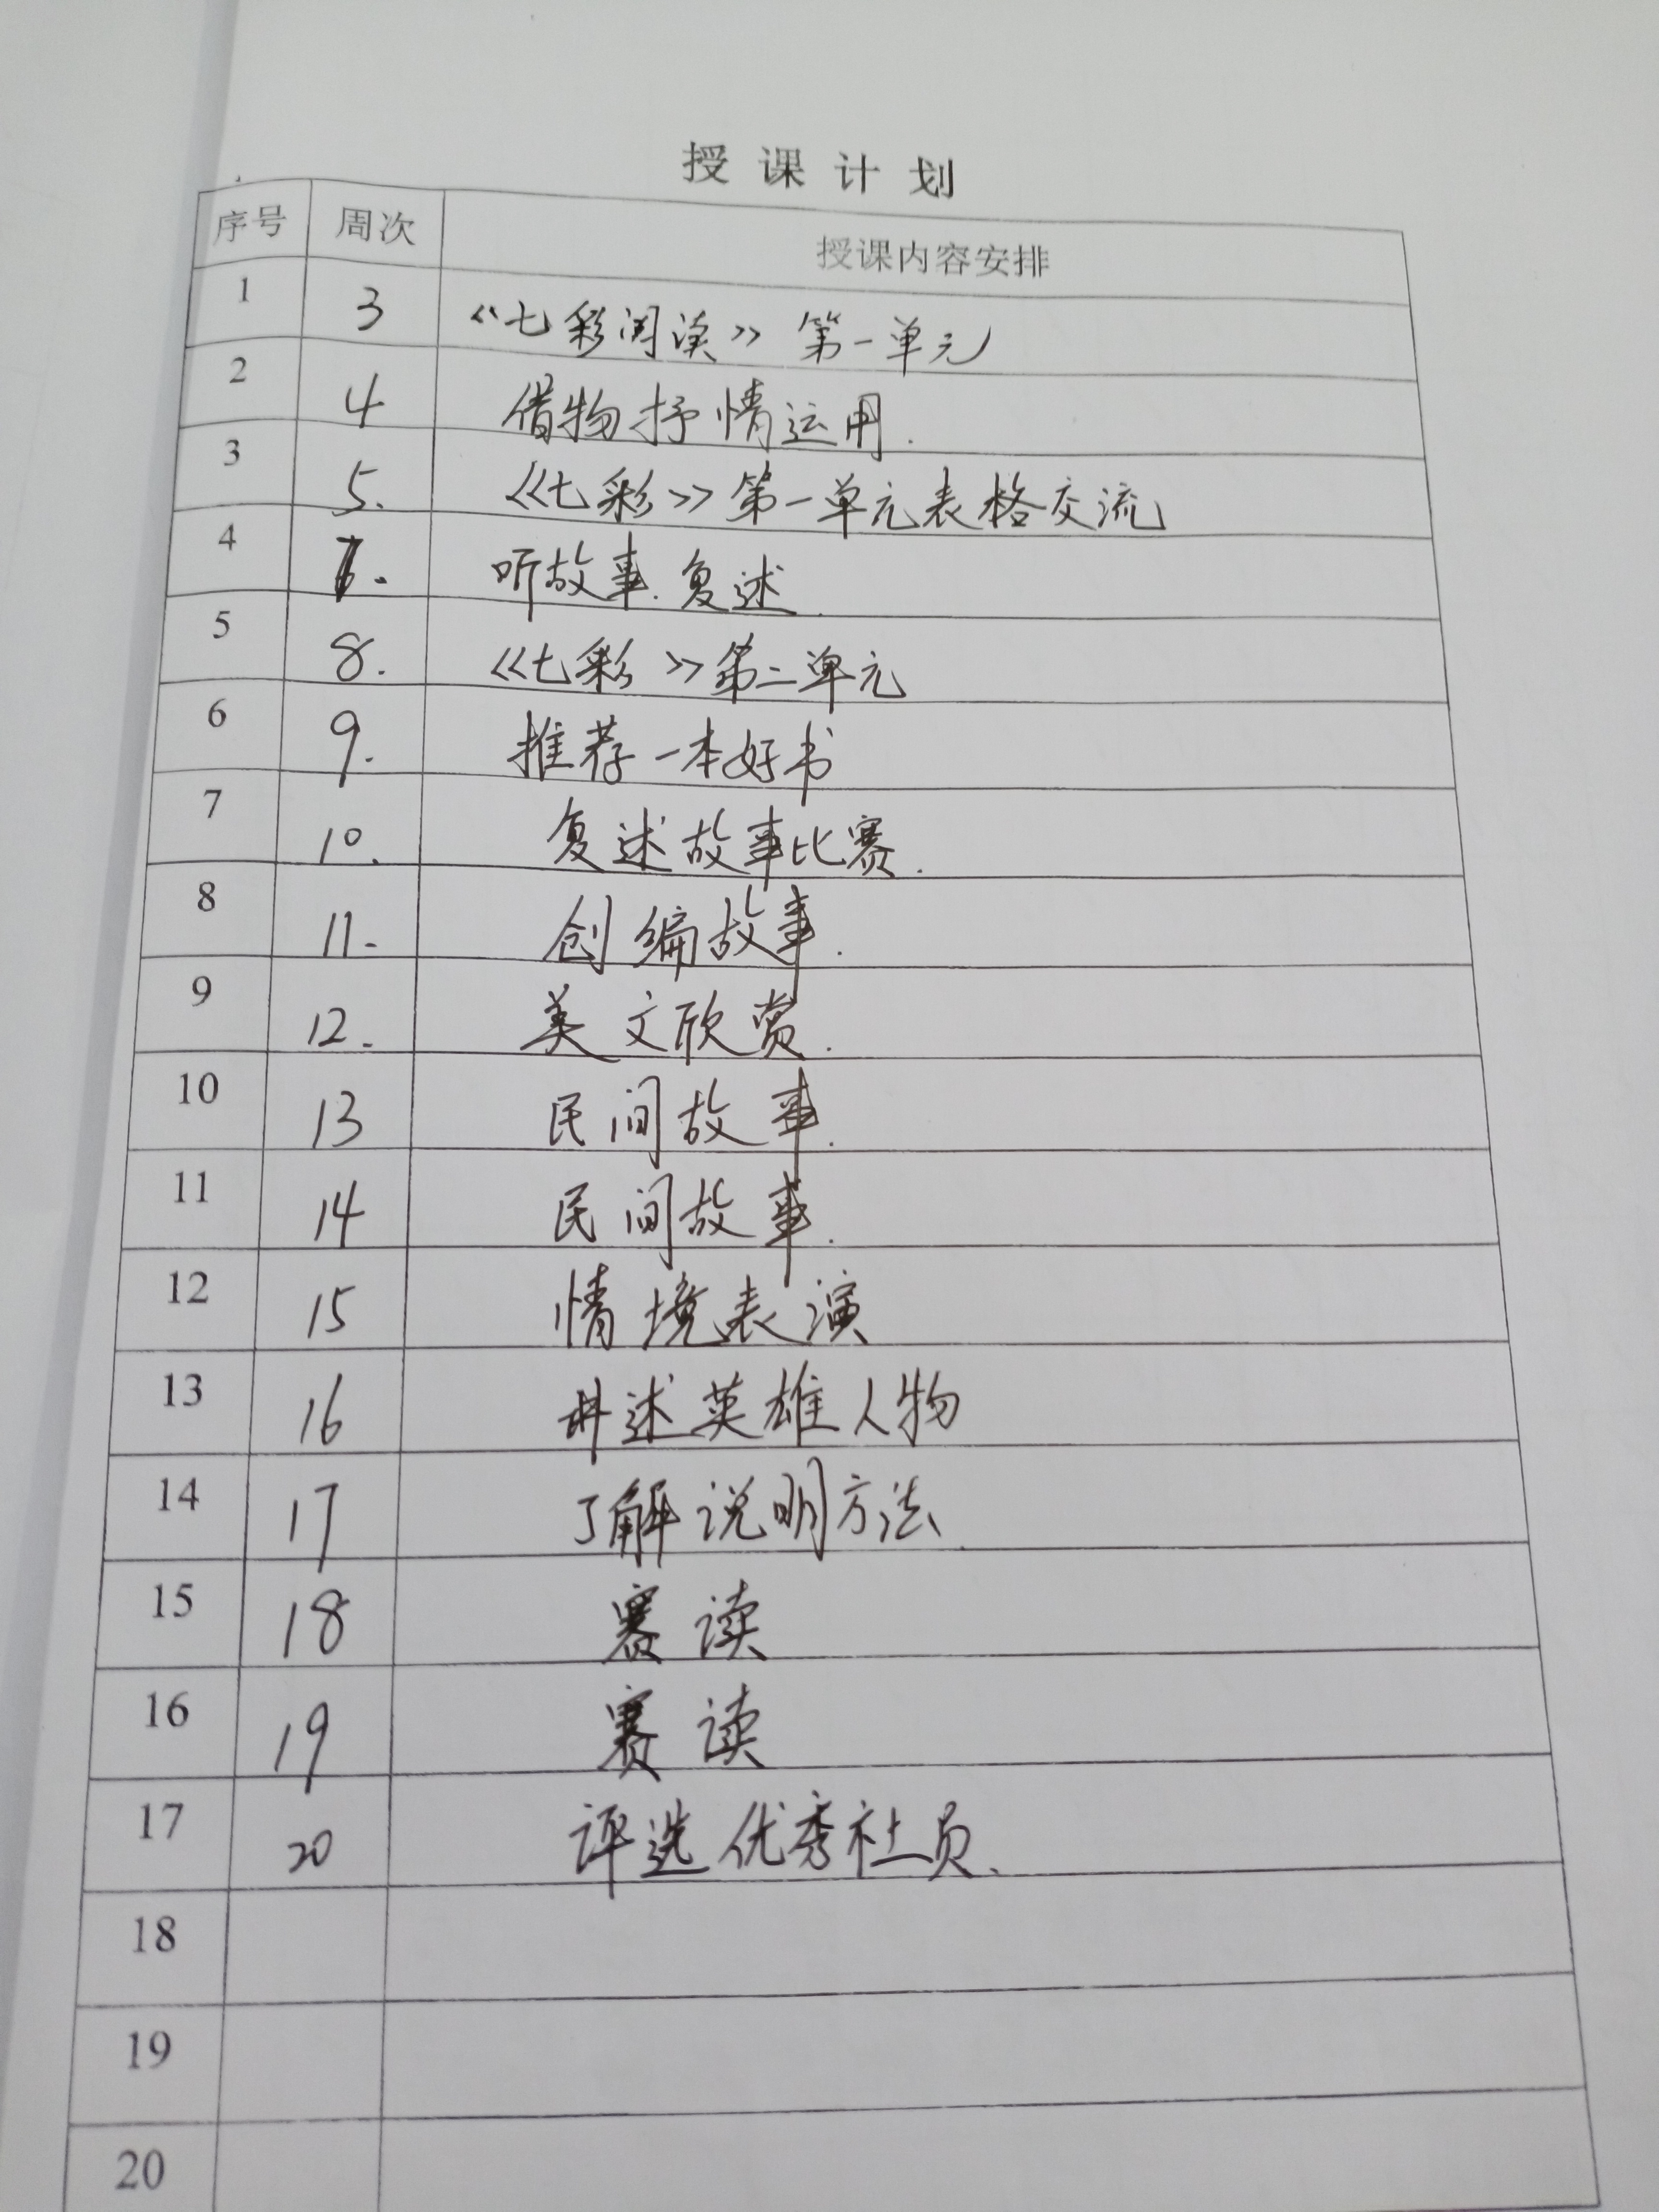 授课计划
序号 周次 授课内容安排
1 3 《七彩阅读》第一单元
2 4 借物抒情运用.
3 5. 《七彩》第一单元表格交流
4 听故事.复述.
5 8. 《七彩》第二单元
6 9. 推荐一本好书
7 10. 复述故事比赛.
8 11. 创编故事.
9 12. 美文欣赏.
10 13 民间故事.
11 14 民间故事.
12 15 情境表演
13 16 讲述英雄人物
14 17 了解说明方法
15 18 赛读
16 19 赛读
17 20 评选优秀社员、
18
19
20